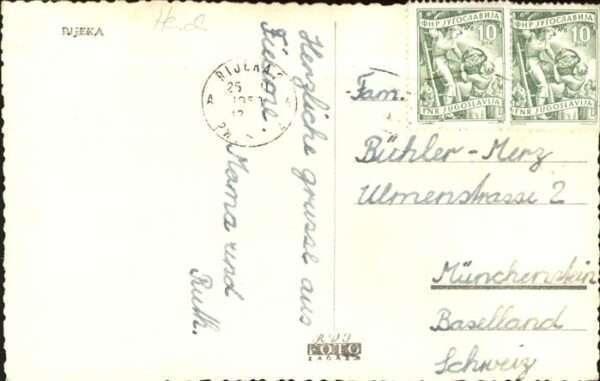 RIJEKA
RIJEKA
Herzliche grusse aus
Fiume.
Mama und
Ruth.
ФНР ЈУГОСЛАВИЈА
10
FNR JUGOSLAVIJA
ФНР ЈУГОСЛАВИЈА
10
FNR JUGOSLAVIJA
Fam.
Bühler-Merz
Ulmenstrasse 2
Münchenstein
Baselland
Schweiz
FOTO
ZAGREB